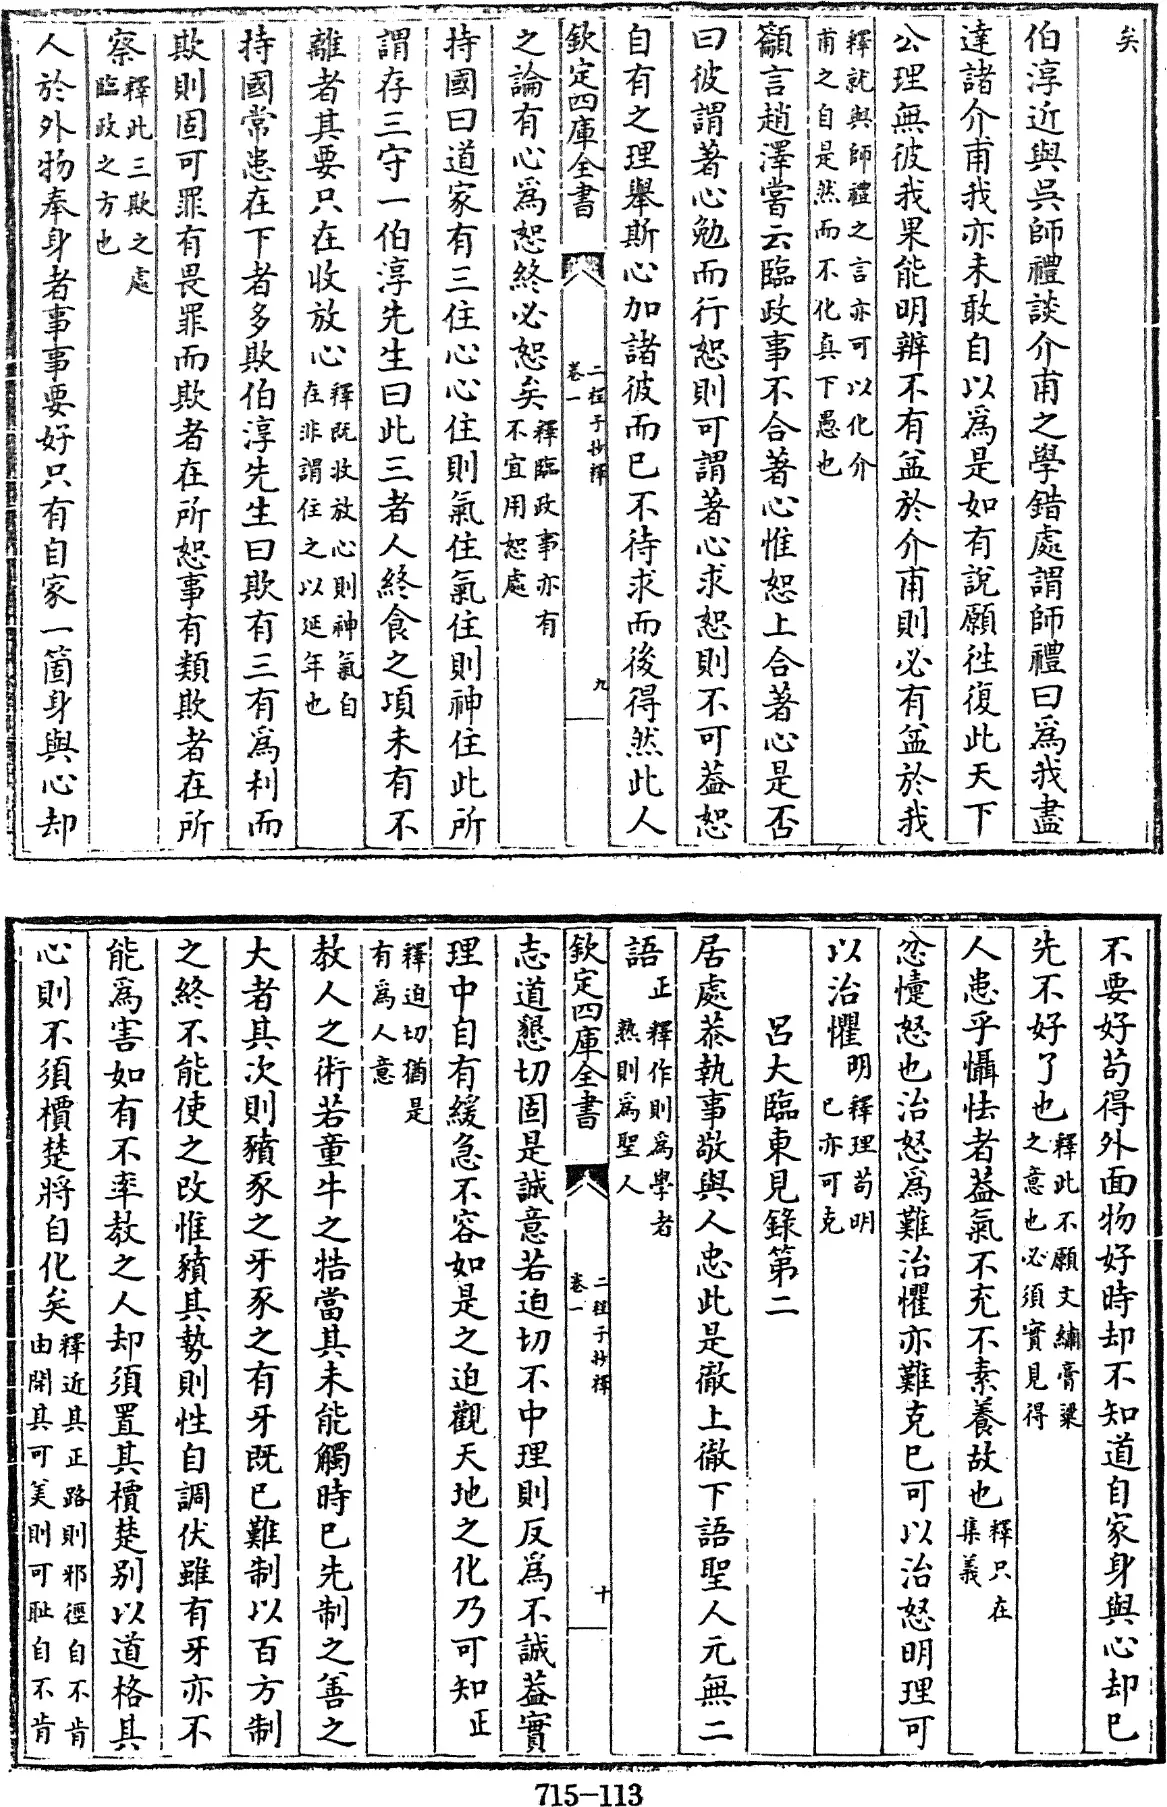 矣
伯淳近與吳師禮談介甫之學錯處謂師禮曰爲我盡
達諸介甫我亦未敢自以爲是如有說願徃復此天下
公理無彼我果能明辨不有益於介甫則必有益於我
釋就與師禮之言亦可以化介
甫之自是然而不化真下愚也
籲言趙澤嘗云臨政事不合著心惟恕上合著心是否
曰彼謂著心勉而行恕則可謂著心求恕則不可葢恕
自有之理舉斯心加諸彼而已不待求而後得然此人
欽定四庫全書
二程子抄釋
卷一
九
之論有心爲恕終必恕矣釋臨政事亦有
不宜用恕處
持國曰道家有三住心住則氣住氣住則神住此所
謂存三守一伯淳先生曰此三者人終食之頃未有不
離者其要只在收放心釋既收放心則神氣自
在非謂住之以延年也
持國常患在下者多欺伯淳先生曰欺有三有爲利而
欺則固可罪有畏罪而欺者在所恕事有類欺者在所
察釋此三欺之處
臨政之方也
人於外物奉身者事事要好只有自家一箇身與心却
不要好苟得外面物好時却不知道自家身與心却已
先不好了也釋此不願文繡膏粱
之意也必須實見得
人患乎懾怯者葢氣不充不素養故也釋只在
集義
忿懥怒也治怒爲難治懼亦難克已可以治怒明理可
以治懼明釋理苟明
已亦可克
呂大臨東見錄第二
居處恭執事敬與人忠此是徹上徹下語聖人元無二
語正釋作則爲學者
熟則爲聖人
欽定四庫全書
二程子抄釋
卷一
十
志道懇切固是誠意若迫切不中理則反爲不誠葢實
理中自有緩急不容如是之迫觀天地之化乃可知正
釋迫切猶是
有爲人意
教人之術若童牛之牿當其未能觸時已先制之善之
大者其次則豶豕之牙豕之有牙既已難制以百方制
之終不能使之改惟豶其勢則性自調伏雖有牙亦不
能爲害如有不率教之人却須置其檟楚别以道格其
心則不須檟楚將自化矣釋近其正路則邪徑自不肯
由開其可美則可耻自不肯
715-113